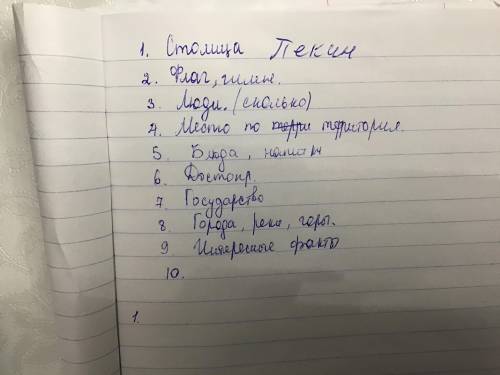 1. Столица Пекин
2. Флаг, гимн.
3. Люди. (сколько)
4. Место по территория.
5. Блюда, напитки
6 Достопр.
7. Государство
8. Города, реки, горы.
9 Интересные факты
10.
1.